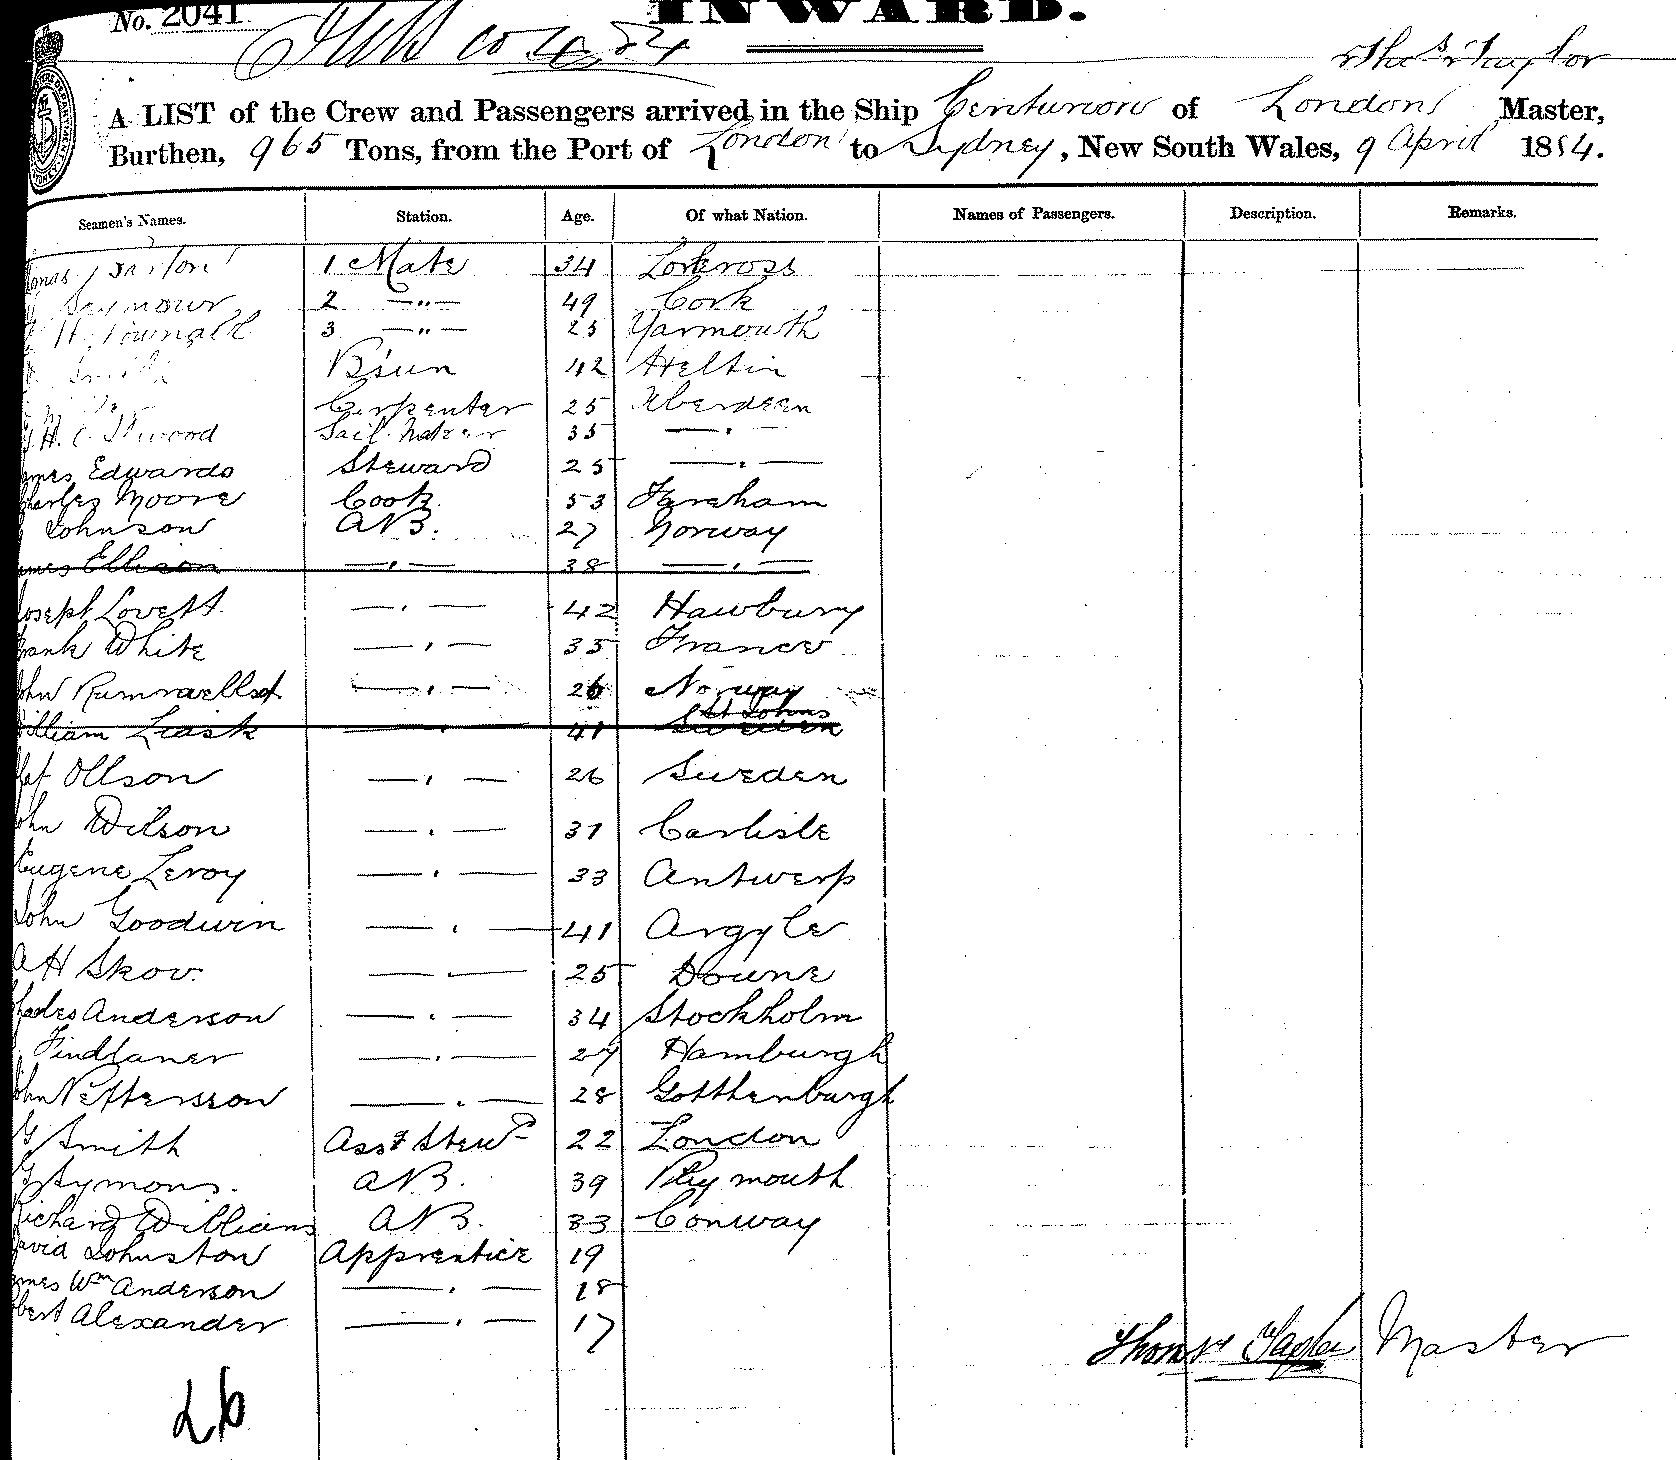 No. 2041 INWARD.
Thos Taylor
A LIST of the Crew and Passengers arrived in the Ship Centurion of London Master,
Burthen, 965 Tons, from the Port of London to Sydney, New South Wales, 9 April 1884.
Seamen's Names. Station. Age. Of what Nation. Names of Passengers. Description. Remarks.
1 Mate 34
Seymour 2 —"— 49 Cork
H. 3 —"— 25 Yarmouth
Smith B'sun 42 Helstin
Carpenter 25 Aberdeen
H. C. Sail Maker 35 — " —
mes Edwards Steward 25 — " —
harles Moore Cook 53 Fareham
Johnson AB. 27 Norway
ames Ellison — " — 38 — " —
Joseph Lovett — " — 42 Hawbury
rank White — " — 35 France
ohn — " — 26 Norway
St Johns
William Leask — " — 41 Sweden
laf Ollson — " — 26 Sweden
ohn Wilson — " — 31 Carlisle
Eugene Leroy — " — 33 Antwerp
John Goodwin — " — 41 Argyle
A H Skov. — " — 25 Doune
harles Anderson — " — 34 Stockholm
Findlaner — " — 27 Hamburgh
ohn Petterson — " — 28 Gotthenburgh
G Smith Asst Stewd 22 London
G Symons. AB. 39 Plymouth
Richard Williams AB. 33 Conway
avid Johnston Apprentice 19
ames Wm Anderson — " — 18
obert Alexander — " — 17
Thomas Taylor Master
26